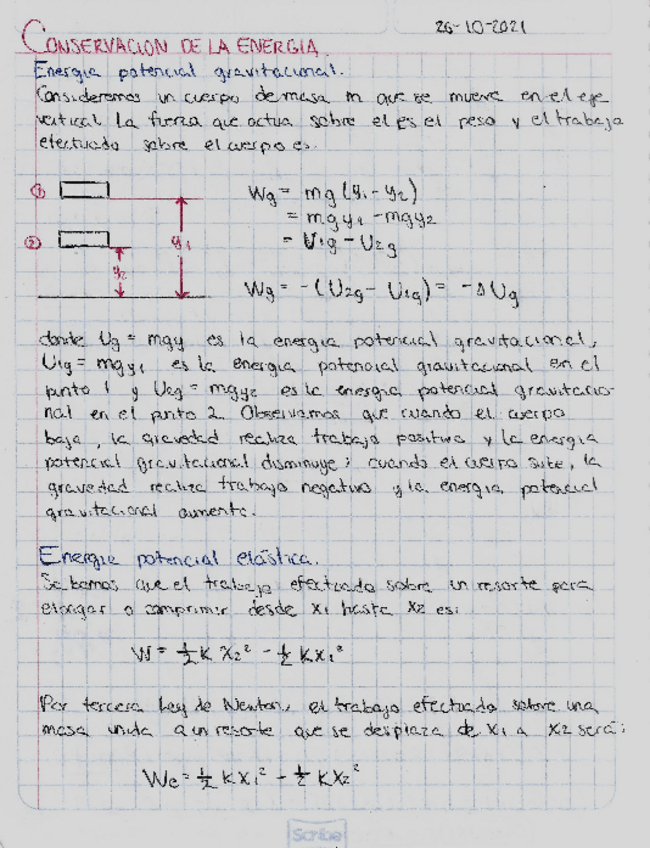 26-10-2021
CONSERVACION DE LA ENERGIA
Energia potencial gravitacional.
Consideremos un cuerpo de masa m que se mueve en el eje
vertical La fuerza que actua sobre el es el peso y el trabajo
efectuado sobre el cuerpo es.
① Wg = mg (y₁ - y₂)
= mgy₁ - mgy₂
② y₁ = U1g - U2g
y₂
Wg = -(U2g - U1g) = -ΔUg
donde Ug = mgy es la energia potencial gravitacional,
U1g = mgy₁ es la energia potencial gravitacional en el
punto 1 y U2g = mgy₂ es la energia potencial gravitacio-
nal en el punto 2. Observamos que cuando el cuerpo
baja, la gravedad realiza trabajo positivo y la energia
potencial gravitacional disminuye; cuando el cuerpo sube, la
gravedad realiza trabajo negativo y la energia potencial
gravitacional aumenta.
Energia potencial elástica.
Sabemos que el trabajo efectuado sobre un resorte para
elongar o comprimir desde x₁ hasta x₂ es:
W = ½ K x₂² - ½ K x₁²
Por tercera Ley de Newton, el trabajo efectuado sobre una
masa unida a un resorte que se desplaza de x₁ a x₂ será:
We = ½ K x₁² - ½ K x₂²
Scribe